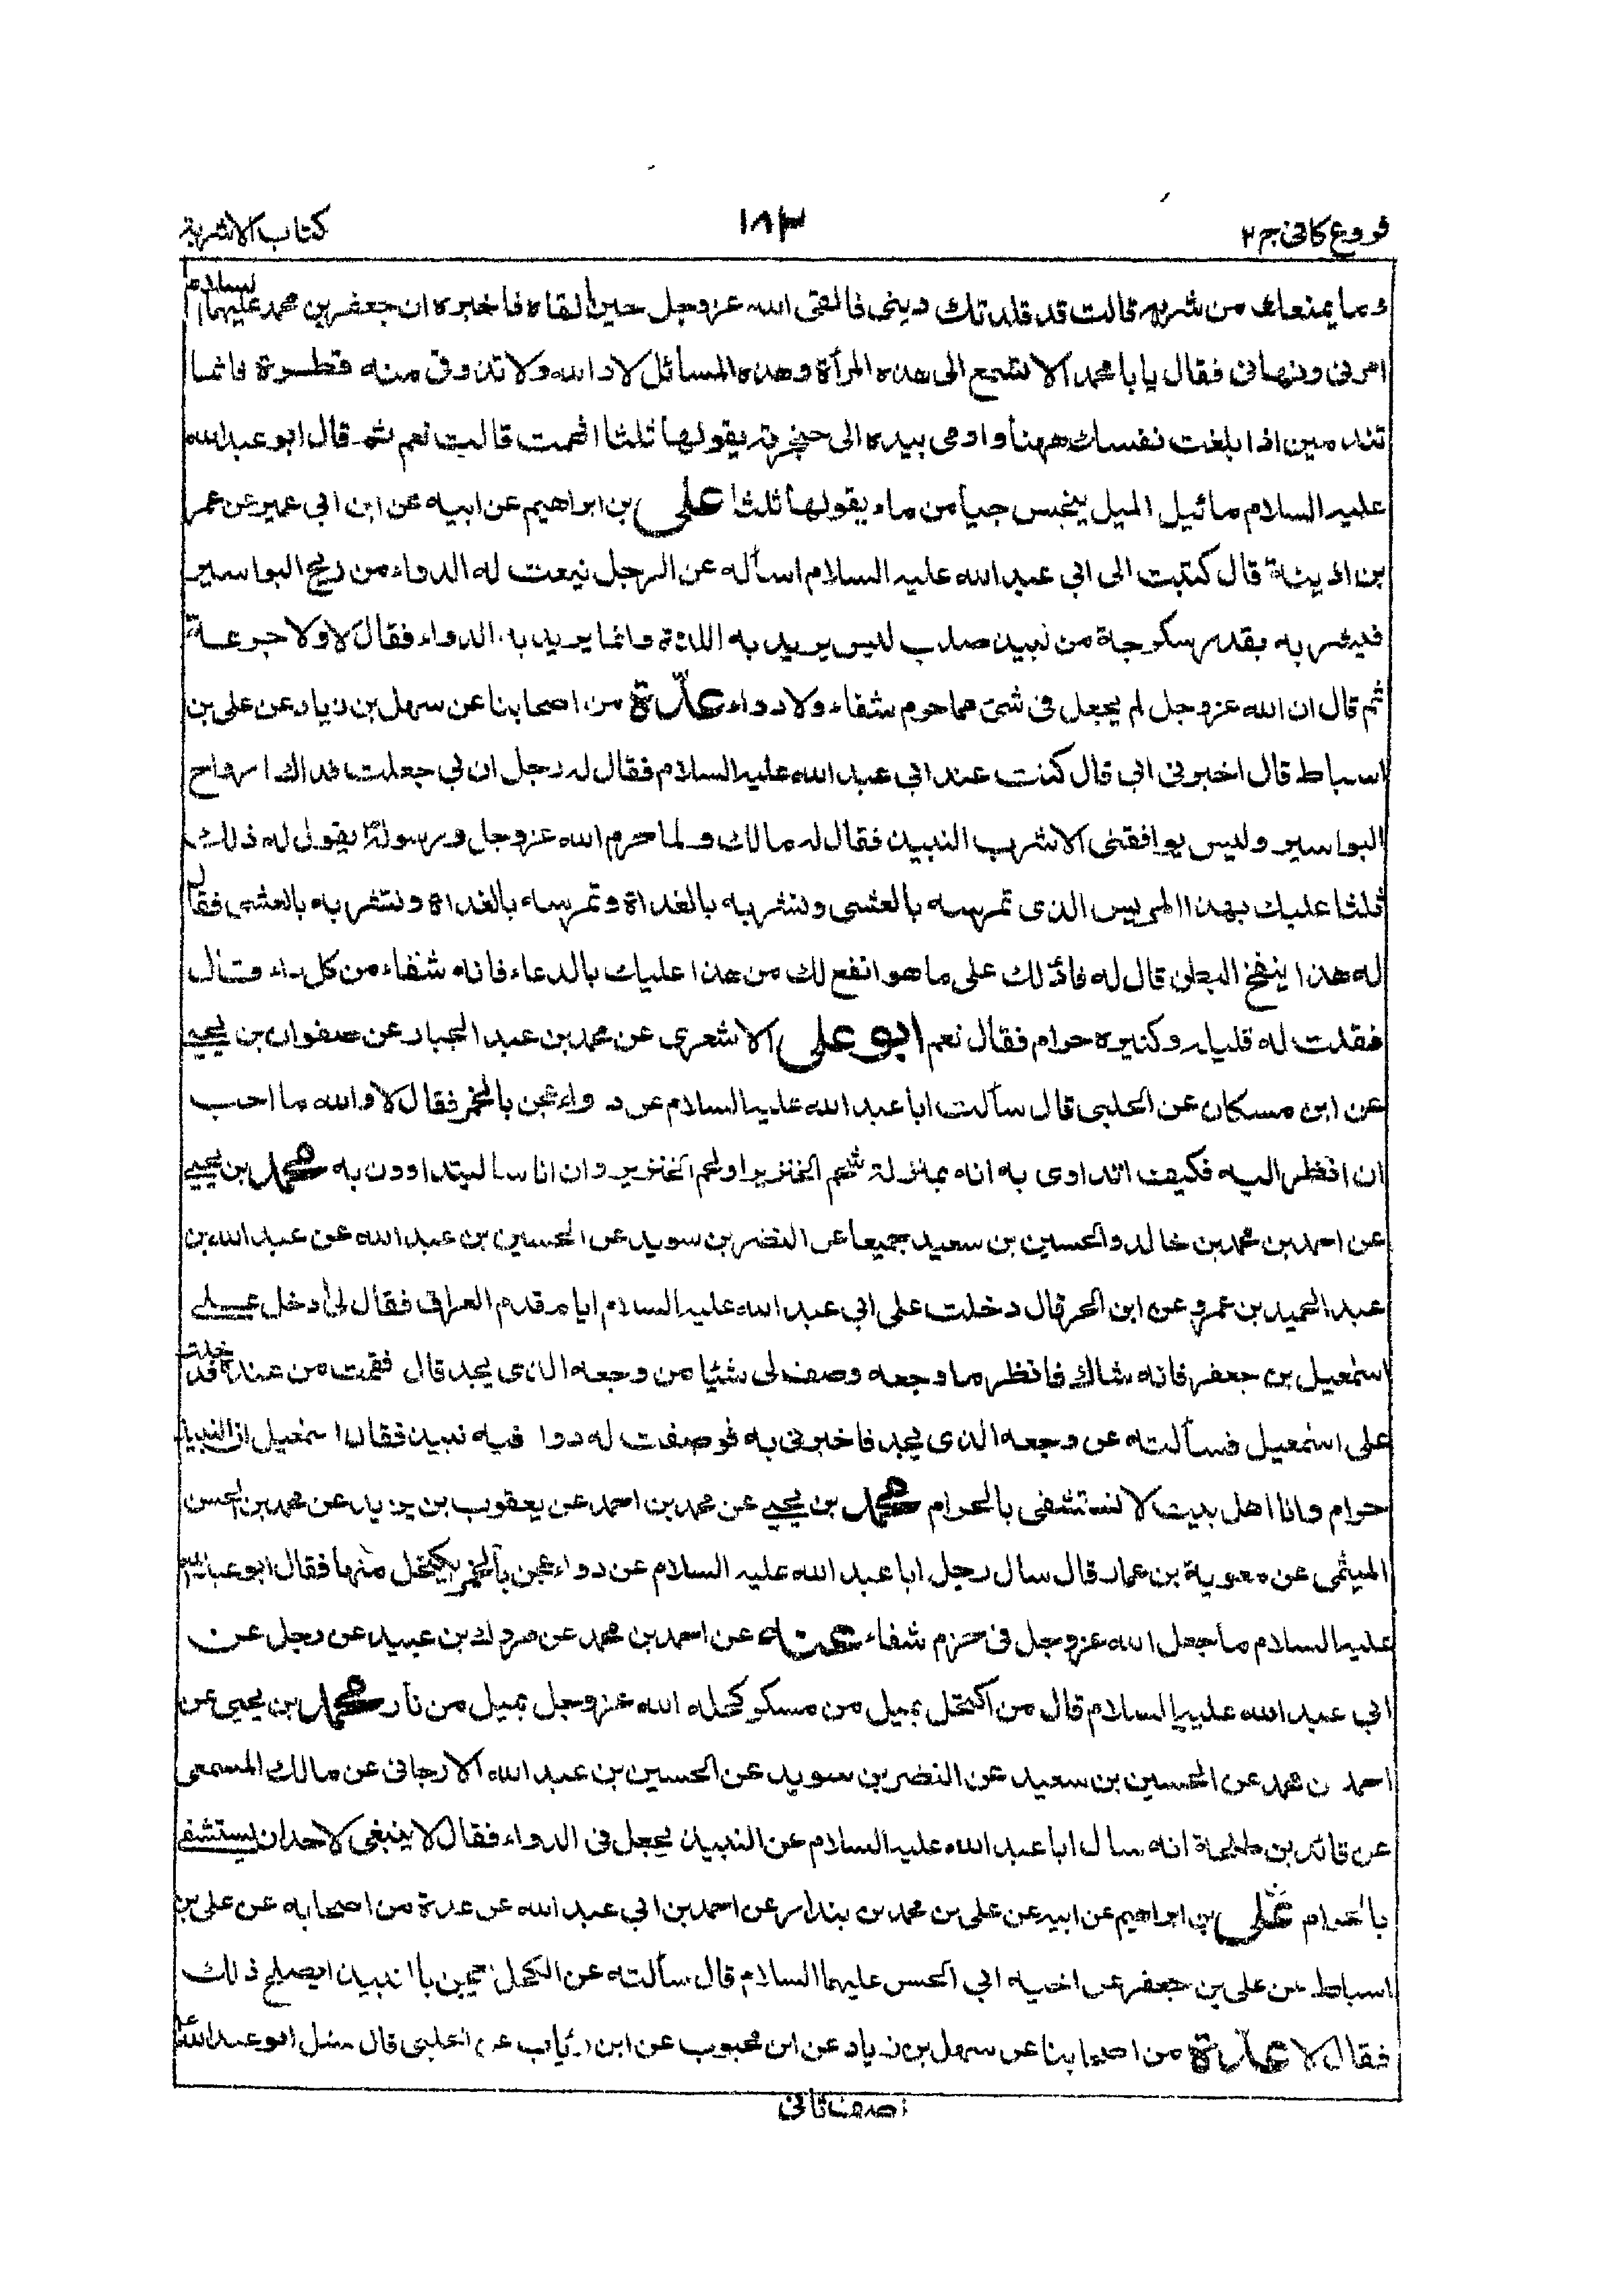 فروع كافى ج ٢
١٨٣
كتاب الاشربة
وما يمنعك من شربه قالت قد قلدتك دينى فالقى الله عزوجل حين القاه فاخبره ان جعفر بن محمد عليهما السلام
امرنى ونهانى فقال يا با محمد الا تسمع الى هذه المرأة وهذه المسائل لا والله ولا تذوق منه قطرة فانما
تندمين اذا بلغت نفسك ههنا واومى بيده الى حنجرته يقولها ثلثا افهمت قالت نعم ثم قال ابو عبدالله
عليه السلام ما يبل الميل ينجس حبا من ماء يقولها ثلثا على بن ابراهيم عن ابيه عن ابن ابي عمير عن عمر
بن اذينة قال كتبت الى ابي عبدالله عليه السلام اسأله عن الرجل ينعت له الدواء من ريح البواسير
فيشربه بقدر سكرجة من نبيذ صلب ليس يريد به اللذة وانما يريد به الدواء فقال لا ولا جرعة
ثم قال ان الله عزوجل لم يجعل فى شئ مما حرم شفاء ولا دواء عدّة من اصحابنا عن سهل بن زياد عن على بن
اسباط قال اخبرنى ابى قال كنت عند ابي عبدالله عليه السلام فقال له رجل ان بي جعلت فداك ارواح
البواسير وليس يوافقنى الا شرب النبيذ فقال له مالك ولما حرم الله عزوجل ورسوله يقول له ذلك
ثلثا عليك بهذا المريس الذى تمرسه بالعشى وتشربه بالغداة وتمرسه بالغداة وتشربه بالعشى فقال
له هذا ينفخ البطن قال له فادلك على ما هو انفع لك من هذا عليك بالدعاء فانه شفاء من كل داء قال
فقلت له قليله وكثيره حرام فقال نعم ابو على الاشعرى عن محمد بن عبد الجبار عن صفوان بن يحيى
عن ابن مسكان عن الحلبى قال سألت ابا عبدالله عليه السلام عن دواء عجن بالخمر فقال لا والله ما احب
ان انظر اليه فكيف اتداوى به انه بمنزلة شحم الخنزير اولحم الخنزير وان اناسا ليتداوون به محمد بن يحيى
عن احمد بن محمد بن خالد والحسين بن سعيد جميعا عن النضر بن سويد عن الحسين بن عبدالله عن عبدالله بن
عبد الحميد بن عمرو عن ابن الحر قال دخلت على ابي عبدالله عليه السلام ايام قدم العراق فقال لى ادخل على
اسمعيل بن جعفر فانه شاك فانظر ما وجعه وصف لى شيئا من وجعه الذى يجد قال فقمت من عنده فدخلت
على اسمعيل فسألته عن وجعه الذى يجد فاخبرنى به فوصفت له دواء فيه نبيذ فقال اسمعيل النبيذ
حرام وانا اهل بيت لا نستشفى بالحرام محمد بن يحيى عن محمد بن احمد عن يعقوب بن يزيد عن محمد بن الحسن
الميثمى عن معوية بن عمار قال سال رجل ابا عبدالله عليه السلام عن دواء عجن بالخمر يكتحل منها فقال ابو عبدالله
عليه السلام ما جعل الله عزوجل فى محرم شفاء عنه عن احمد بن محمد عن مروك بن عبيد عن رجل عن
ابي عبدالله عليه السلام قال من اكتحل بميل من مسكر كحله الله عزوجل بميل من نار محمد بن يحيى عن
احمد بن محمد عن الحسين بن سعيد عن النضر بن سويد عن الحسين بن عبدالله الارجانى عن مالك المسمعى
عن قائد بن طلحة انه سال ابا عبدالله عليه السلام عن النبيذ يجعل فى الدواء فقال لا ينبغى لاحد ان يستشفى
بالحرام على بن ابراهيم عن ابيه عن على بن محمد بن بندار عن احمد بن ابي عبدالله عن عدة من اصحابه عن على بن
اسباط عن على بن جعفر عن اخيه ابي الحسن عليهما السلام قال سألته عن الكحل يعجن بالنبيذ ايصلح ذلك
فقال لا عدّة من اصحابنا عن سهل بن زياد عن ابن محبوب عن ابن رئاب عن الحلبى قال سئل ابو عبدالله ع
نصف ثانى